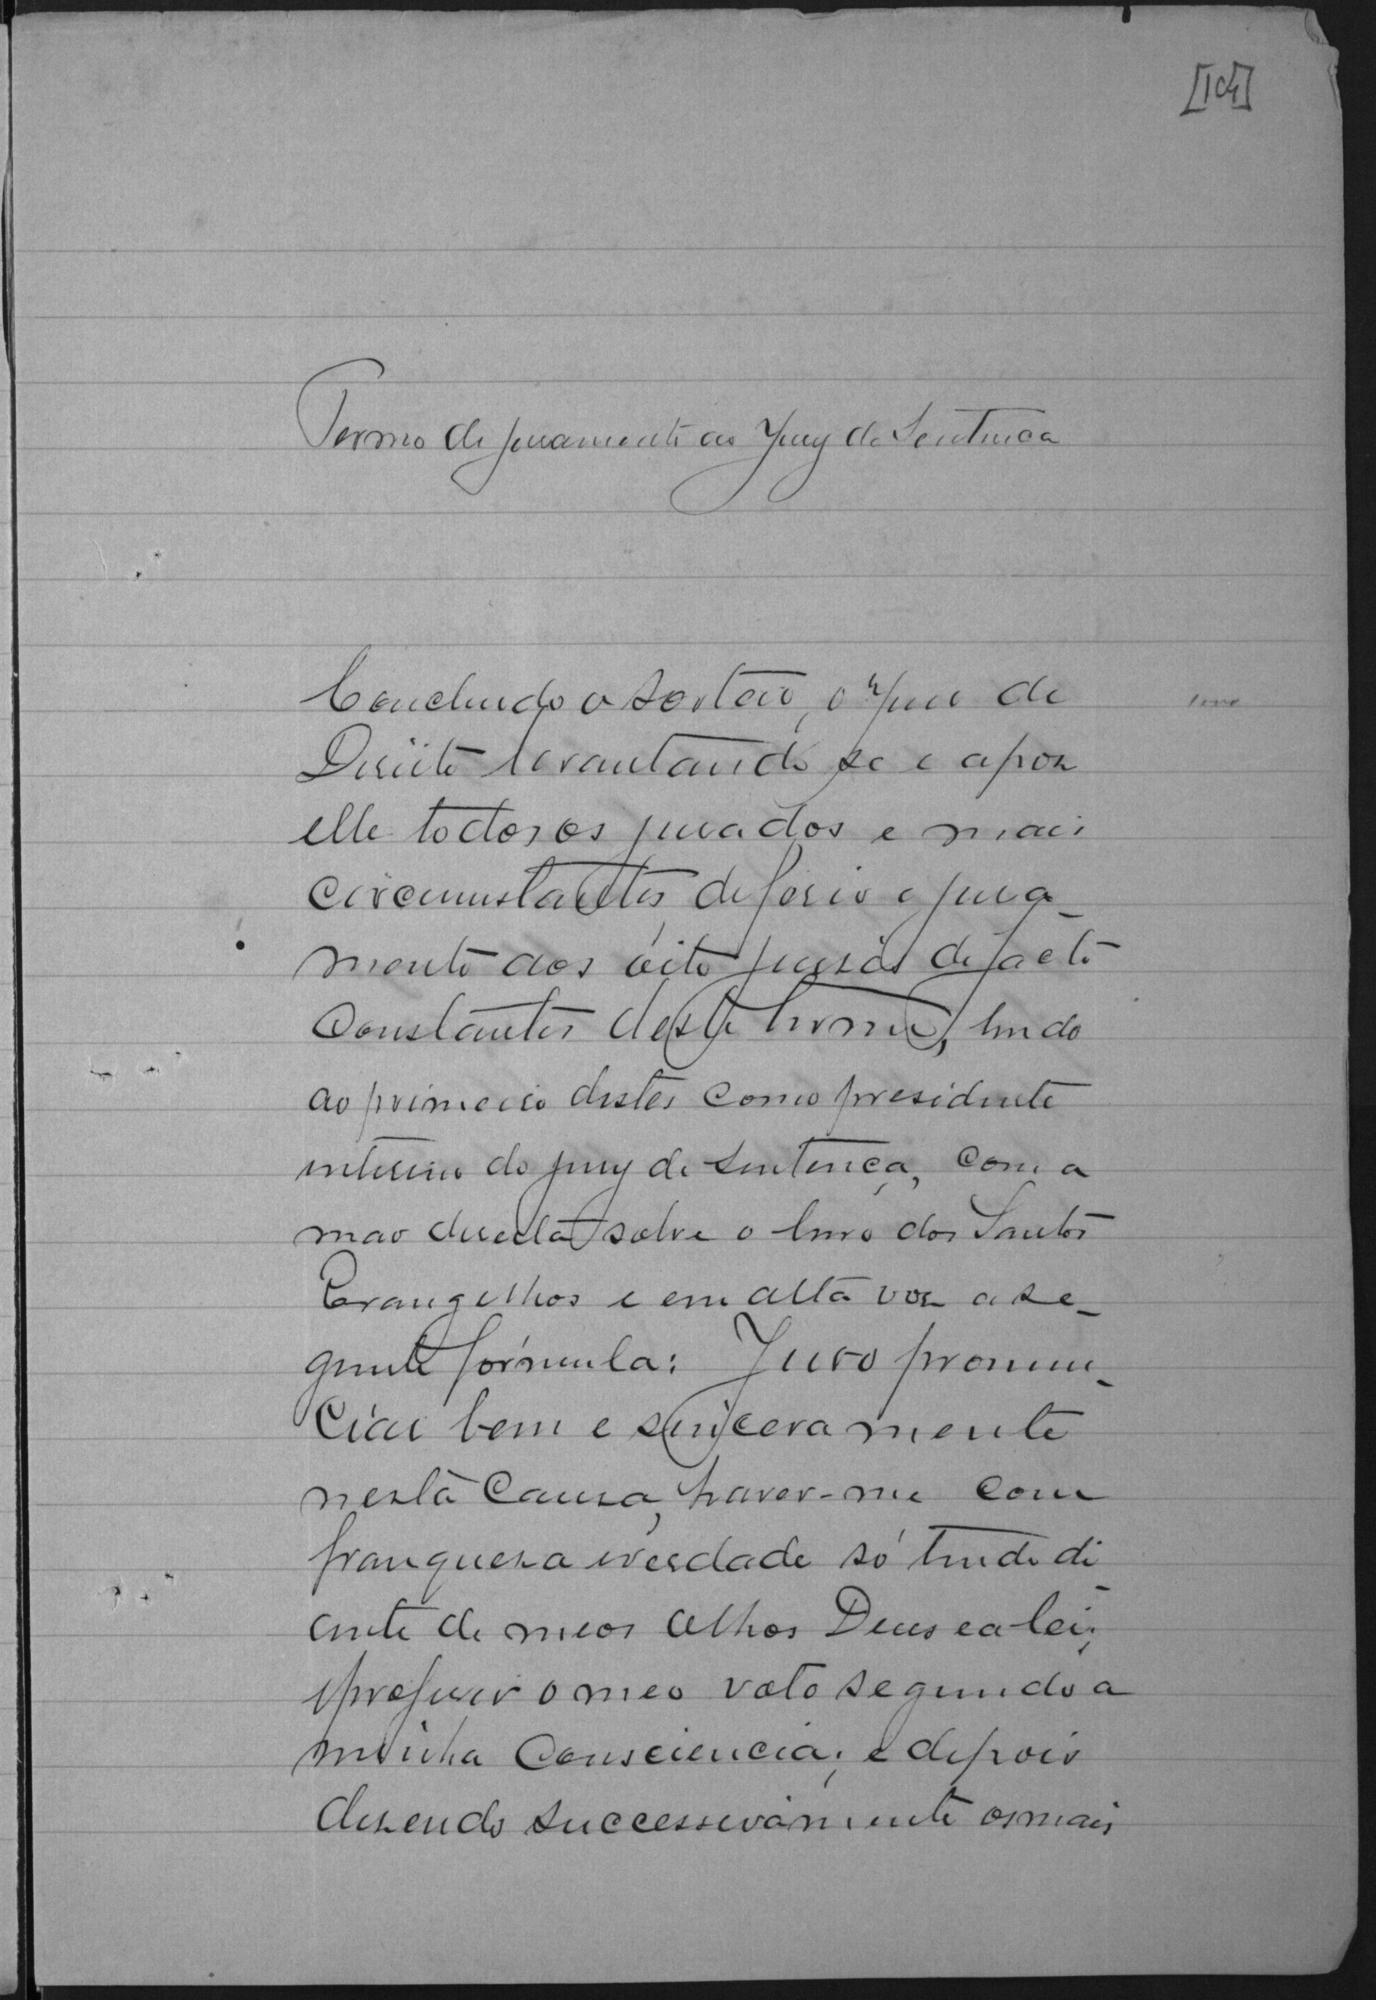 [104]
Termo de juramento ao Jury de Sentença
Concluido o sorteio, o Juiz de
Direito levantando se e apoz
elle todos os jurados e mais
circumstantes, deferio o jura-
mento aos oito juizes de facto
constantes deste termo, lendo
ao primeiro destes como presidente
interino do jury de sentença, com a
mao direita sobre o livro dos Santos
Evangelhos e em alta voz a se-
guinte fórmula: Juro pronun-
ciar bem e sinceramente
nesta causa, haver-me com
franqueza e verdade só tendo di
ante de meos olhos Deus e a lei;
e proferir o meo voto segundo a
minha consciencia; e depois
dizendo successivamente os mais